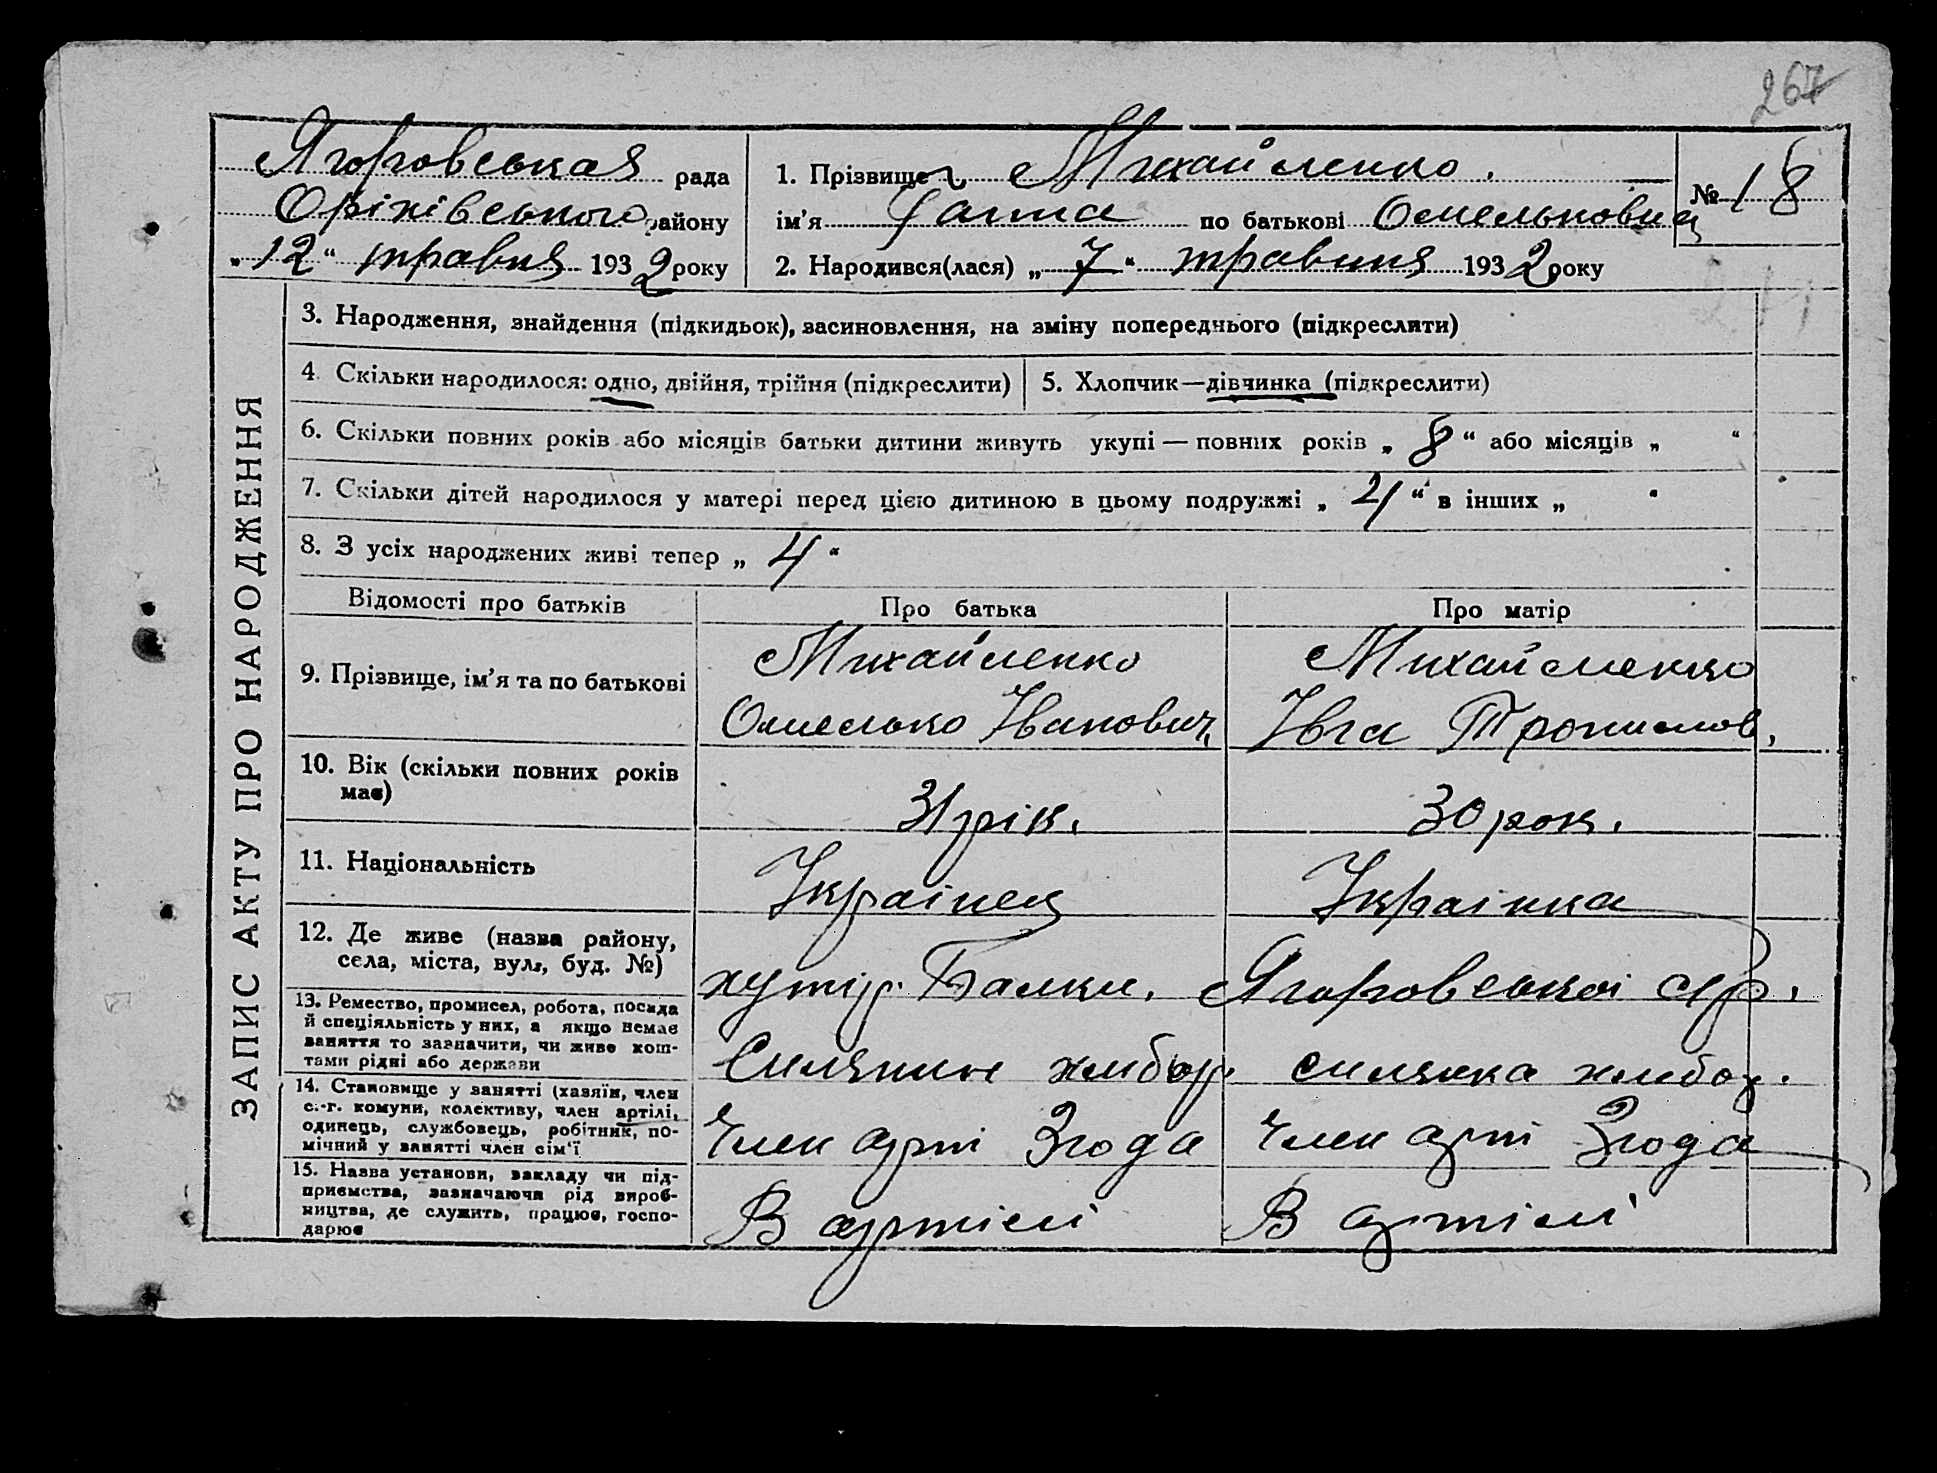 267
Ягоровськая рада
Оріхівського району
„12“ травня 1932 року
1. Прізвище Михайленко.
ім’я Ганна по батькові Омельковна
2. Народився(лася) „7“ травня 1932 року
№ 18
ЗАПИС АКТУ ПРО НАРОДЖЕННЯ
3. Народження, знайдення (підкидьок), засиновлення, на зміну попереднього (підкреслити)
4. Скільки народилося: одно, двійня, трійня (підкреслити)
5. Хлопчик—дівчинка (підкреслити)
6. Скільки повних років або місяців батьки дитини живуть укупі — повних років „8“ або місяців „ “
7. Скільки дітей народилося у матері перед цією дитиною в цьому подружжі „4“ в інших „ “
8. З усіх народжених живі тепер „4“
Відомості про батьків Про батька Про матір
9. Прізвище, ім’я та по батькові
Михайленко
Омелько Іванович,
Михайленко
Івга
10. Вік (скільки повних років
має)
31 рік.
30 рок.
11. Національність
Українец
Українка
12. Де живе (назва району,
села, міста, вул., буд. №)
хутір. Балки. Ягоровської с/р.
13. Ремество, промисел, робота, посада
й спеціяльність у них, а якщо немає
заняття то зазначити, чи живе кош-
тами рідні або держави
Силянин хлибор. силянка хлибор.
14. Становище у занятті (хазяїн, член
с.-г. комуни, колективу, член артілі,
одинець, службовець, робітник, по-
мічний у занятті член сім’ї
Член арті Згода
Член арті Згода
15. Назва установи, закладу чи під-
приємства, зазначаючи рід вироб-
ництва, де служить, працює, госпо-
дарює
В артілі
В артілі